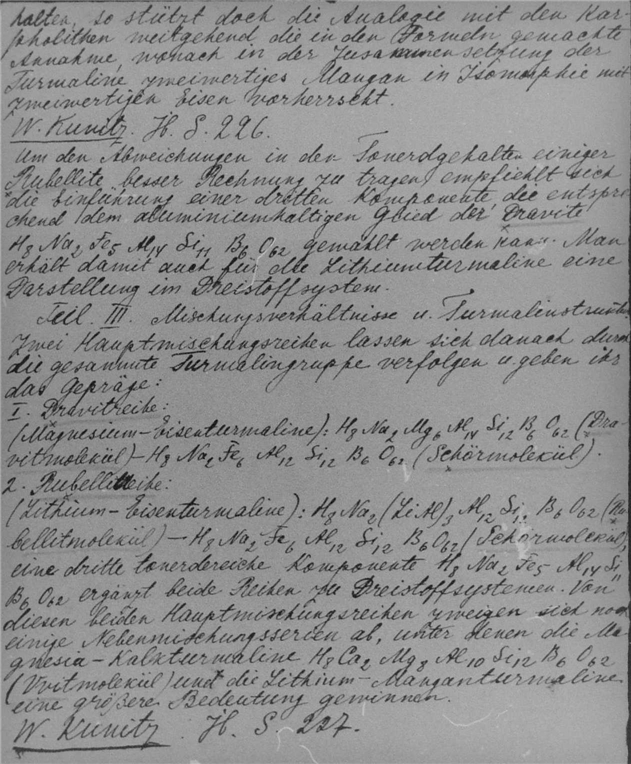 halten, so stützt doch die Analogie mit den Kar-
pholithen weitgehend die in den Formeln gemachte
Annahme, wonach in der Zusammensetzung der
Turmaline zweiwertiges Mangan in Isomorphie mit
zweiwertigen Eisen vorherrscht.
W. Kunitz. H. S. 226.
Um den Abweichungen in den Tonerdgehalten einiger
Rubellite besser Rechnung zu tragen, empfiehlt sich
die Einführung einer dritten Komponente, die entspre
chend dem aluminiumhaltigen Glied der Dravite
H8 Na2 Fe5 Al14 Si11 B6 O62 gewählt werden kann. Man
erhält damit auch für die Lithiumturmaline eine
Darstellung im Dreistoffsystem.
Teil. III. Mischungsverhältnisse u. Turmalinstruktur
Zwei Hauptmischungsreihen lassen sich danach durch
die gesammte Turmalingruppe verfolgen u. geben ihr
das Gepräge:
I. Dravitreihe:
(Magnesium-Eisenturmaline): H8 Na2 Mg6 Al14 Si12 B6 O62 (Dra-
vitmolekül) - H8 Na2 Fe6 Al12 Si12 B6 O62 (Schörlmolekül).
2. Rubellitreihe:
(Lithium-Eisenturmaline): H8 Na2 (LiAl)3 Al12 Si12 B6 O62 (Ru
bellitmolekül) - H8 Na2 Fe6 Al12 Si12 B6 O62 (Schörmolekül),
eine dritte tonerdereiche Komponente H8 Na2 Fe5 Al14 Si11
B6 O62 ergänzt beide Reihen zu Dreistoffsystemen. Von
diesen beiden Hauptmischungsreihen zweigen sich noch
einige Nebenmischungsserien ab, unter denen die Ma-
gnesia-Kalkturmaline H8 Ca2 Mg8 Al10 Si12 B6 O62
(Uvitmolekül) und die Lithium-Manganturmaline
eine größere Bedeutung gewinnen.
W. Kunitz. H. S. 227.